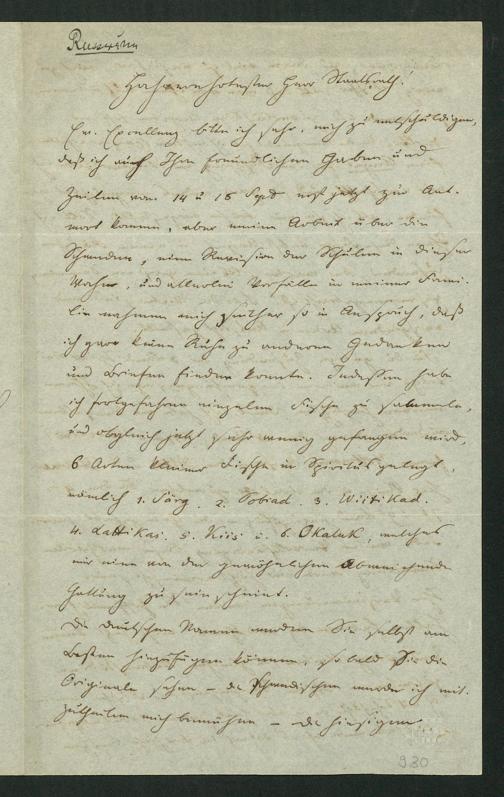 Russwurm
Hochverehrtester Herr Staatsrath!
Ew. Excellenz bitte ich sehr, mich zu entschuldigen,
daß ich auf Ihre freundlichen Gaben und
Zeilen vom 14 u 16 Sept erst jetzt zur Ant-
wort komme, aber meine Arbeit über die
Schweden, eine Revision der Schulen in dieser
Woche, und allerlei Vorfälle in meiner Fami-
lie nahmen mich seither so in Anspruch, daß
ich gar keine Ruhe zu anderen Gedanken
und Briefen finden konnte. Indessen habe
ich fortgefahren einzelne Fische zu sammeln,
und obgleich jetzt sehr wenig gefangen wird,
6 Arten kleiner Fische in Spiritus gelegt,
nämlich 1. Särg. 2. Tobiad. 3. Wiitikad.
4. Lattikas. 5. Kiis u. 6. Okaluk, welches
mir eine von der gewöhnlichen abweichende
Gattung zu sein scheint.
Die deutschen Namen werden Sie selbst am
Besten hinzufügen können, sobald Sie die
Originale sehen – die schwedischen werde ich mit-
zutheilen mich bemühen – die hiesigen
930